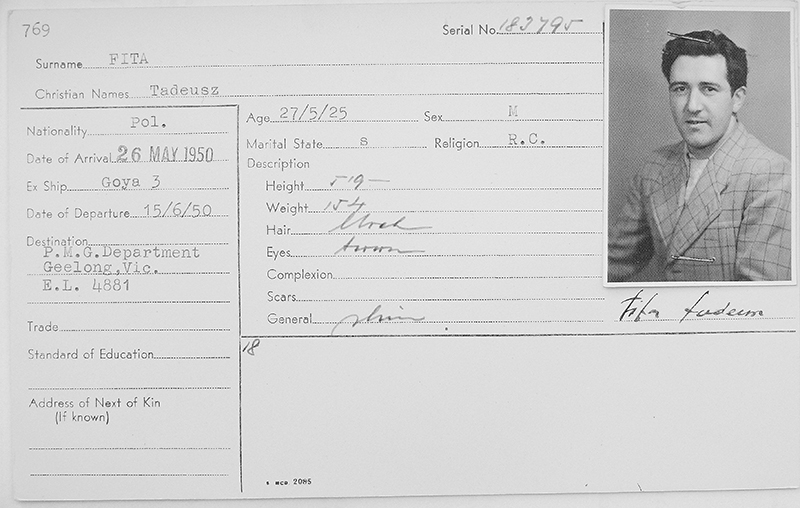 769
Serial No. 183795
Surname FITA
Christian Names Tadeusz
Nationality Pol.
Date of Arrival 26 MAY 1950
Ex Ship Goya 3
Date of Departure 15/6/50
Destination
P.M.G.Department
Geelong,Vic.
E.L. 4881
Trade
Standard of Education
Address of Next of Kin
(If known)
Age 27/5/25 Sex M
Marital State S Religion R.C.
Description
Height 5'9"
Weight 154
Hair black
Eyes brown
Complexion
Scars
General slim
Fita Tadeusz
18
2085